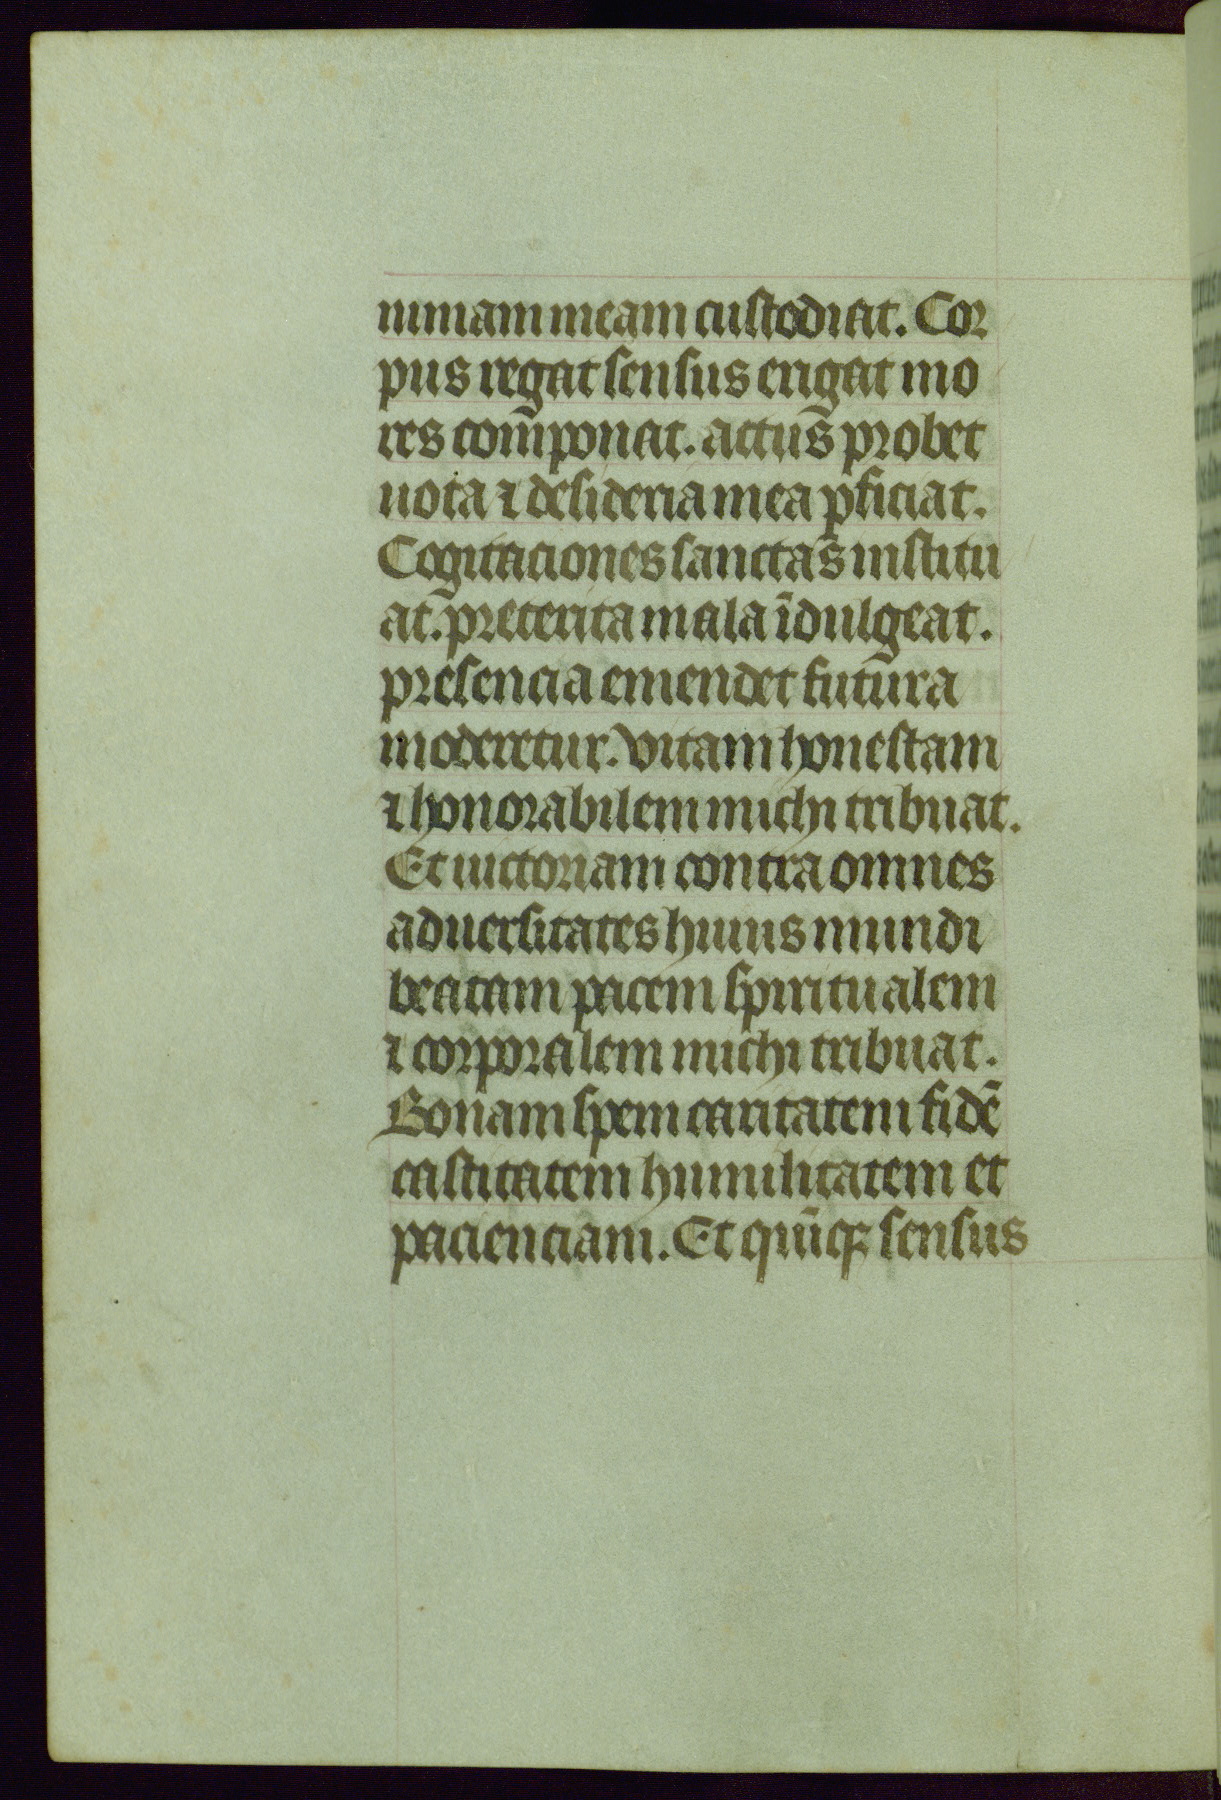 nimam meam custodiat. Cor
pus regat sensus erigat mo
res componat. actus probet
uota ⁊ desideria mea ꝑficiat.
Cogitaciones sanctas institu
at. preterita mala īdulgeat.
presencia emendet futura
moderetur. vitam honestam
⁊ honorabilem michi tribuat.
Et uictoriam contra omnes
aduersitates huius mundi
beatam pacem spiritualem
⁊ corporalem michi tribuat.
Bonam spem caritatem fidē
castitatem humilitatem et
pacienciam. Et quīqꝫ sensus